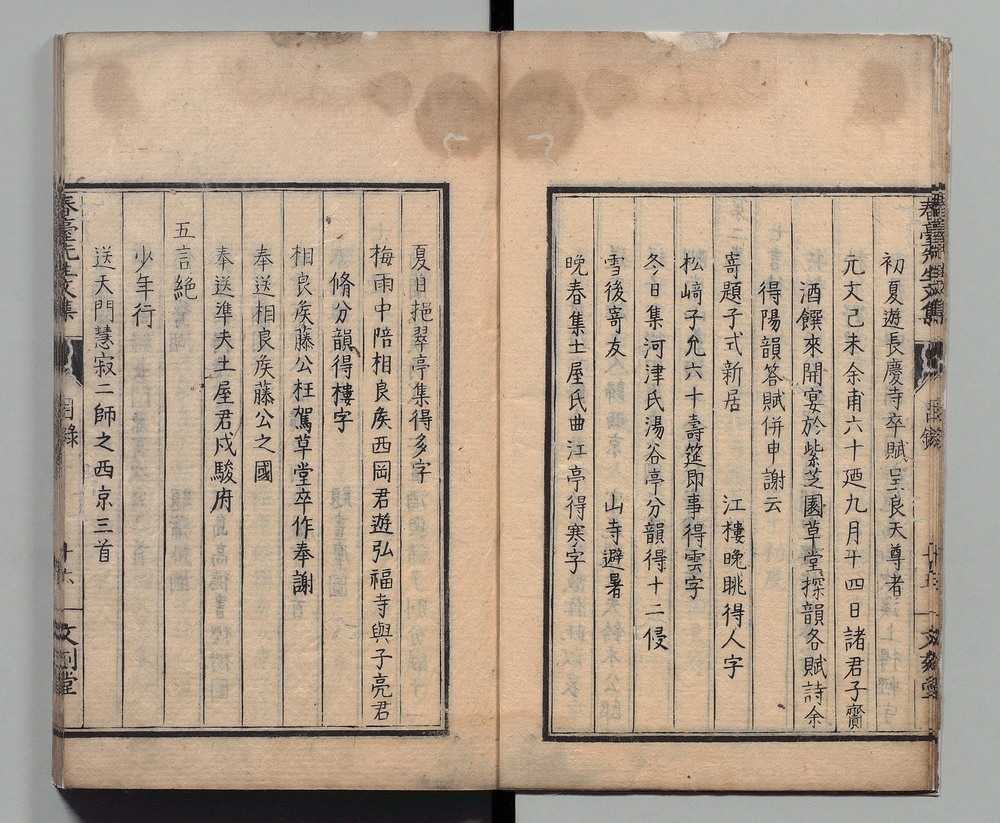 初夏遊長慶寺卒賦呈良天尊者
元文己未余甫六十廼九月十四日諸君子齎
酒饌來開宴於紫芝園草堂探韻各賦詩余
得陽韻答賦併申謝云
寄題子式新居　江樓晚眺得人字
松﨑子允六十壽筵即事得雲字
冬日集河津氏湯谷亭分韻得十二侵
雪後寄友人　山寺避暑
晚春集土屋氏曲江亭得寒字
夏日挹翠亭集得多字
梅雨中陪相良矦西岡君遊弘福寺與子亮君
脩分韻得樓字
相良矦藤公枉駕草堂卒作奉謝
奉送相良矦藤公之國
奉送準夫土屋君戍駿府
五言絶
少年行
送天門慧寂二師之西京三首
春臺先生文集
目錄
十六
文刻堂